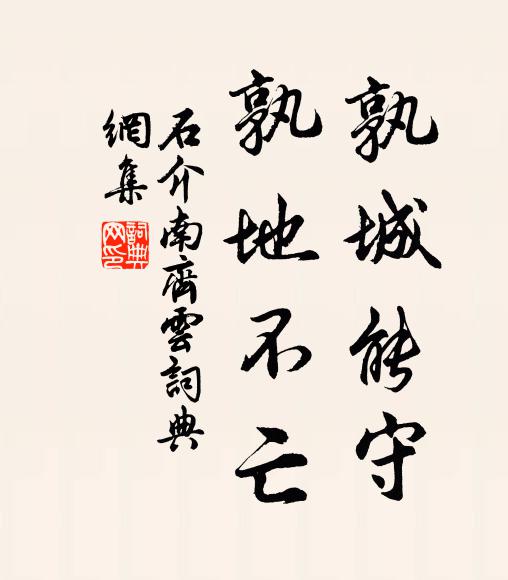 孰城能守
孰地不亡
石介南齊雲詞典
網集
詞典
网印